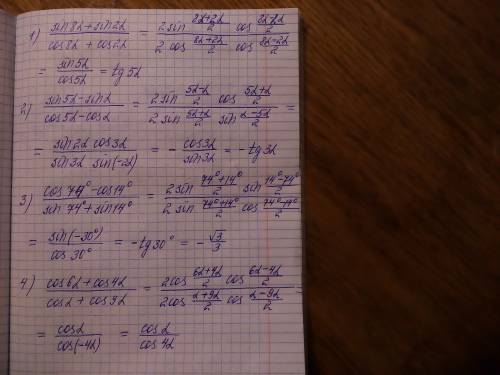 1) (sin8α + sin2α)/(cos8α + cos2α) = (2sin (8α+2α)/2 cos (8α-2α)/2)/(2 cos (8α+2α)/2 cos (8α-2α)/2) =
= sin5α/cos5α = tg5α
2) (sin5α - sinα)/(cos5α - cosα) = (2sin (5α-α)/2 cos (5α+α)/2)/(2 sin (5α+α)/2 sin (α-5α)/2) =
= (sin2α cos3α)/(sin3α sin(-2α)) = - cos3α/sin3α = - tg3α
3) (cos74° - cos14°)/(sin74° + sin14°) = (2sin (74°+14°)/2 sin (14°-74°)/2)/(2 sin (74°+14°)/2 cos (74°-14°)/2) =
= sin(-30°)/cos30° = -tg30° = - √3/3
4.) (cos6α + cos4α)/(cosα + cos9α) = (2cos (6α+4α)/2 cos (6α-4α)/2)/(2cos (α+9α)/2 cos (α-9α)/2) =
= cosα/cos(-4α) = cosα/cos4α